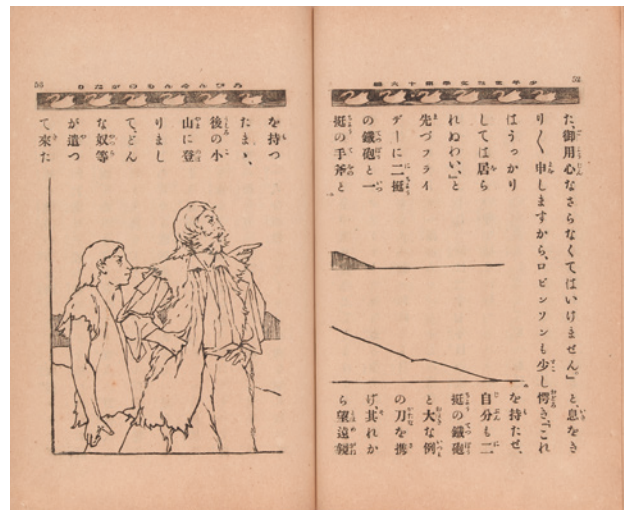 52
た、御用心なさらなくてはいけません」と、息をき
り〳〵申しますから、ロビンソンも少し愕き、「これ
はうつかり
しては居ら
れぬわい。」と
先づフライ
デーに二挺
の鐵砲と一
挺の手斧と
を持たせ、
自分も二
挺の鐵砲
と大な例
の刀を携
げ、其れか
ら望遠鏡
ろびんそんものがたり
53
を持つ
たまゝ、
後の小
山に登
りまし
て、どん
な奴等
が遣つ
て來た